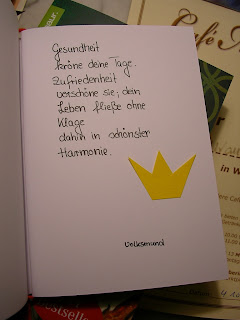 Gesundheit
kröne deine Tage.
Zufriedenheit
verschöne sie; dein
Leben fließe ohne
Klage
dahin in schönster
Harmonie.
Volksmund
Café
Bestseller